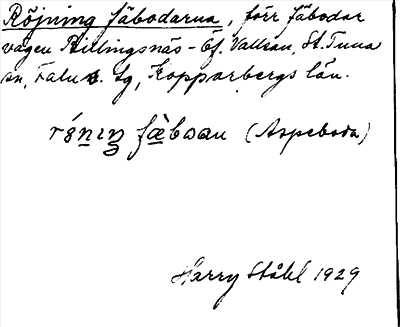 Röjning fäbodarna, förr fäbodar
vägen Billingsnäs - Öf. Vallsan, St. Tuna
sn, Falu s. tg, Kopparbergs län.
(Aspeboda)
Harry Ståhl 1929